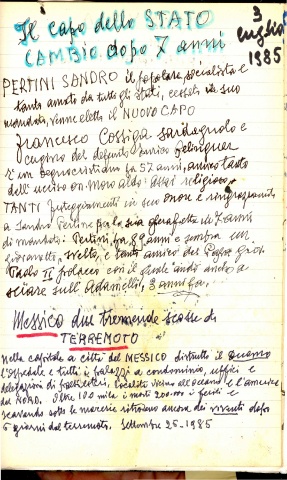 Il capo dello STATO
CAMBIO dopo 7 anni
3
luglio
1985
PERTINI SANDRO il popolare, socialista e
tanto amato da tutti gli stati, cessato il suo
mandato, venne eletto il NUOVO CAPO
Francesco Cossiga sardagnolo e
cugino del defunto Enrico Belinguer
E' un democristiano fa 57 anni, amico
dell'ucciso on. moro aldo: assai religioso
TANTI festeggiamenti in suo onore e ringraziamenti
a Sandro Pertini per la sua di 7 anni
di mandato: Pertini, fra 89 anni e sembra un
giovanetto, svelto, e tanto amico del Papa Gio:
Paolo II polacco con il quale andò anche a
sciare sull'Adamello, 3 anni fa.
Messico due tremende scosse di
TERREMOTO
nella capitale a città del MESSICO distrutto il
l'ospedale e tutti i palazzi a condominio, uffici e
località vicino all'oceano e l'america
del NORD. Oltre 100 mila i morti 200.000 i feriti e
scavando sotto le macerie ritrovano ancora dei viventi dopo
6 giorni dal terremoto. Settembre 25-1985